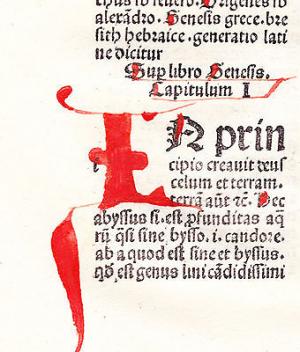 thus io severo. Origenes io
alexãdro. Genesis grece. bre
sith hebraice. generatio lati
ne dicitur
Sup libro Genesis.
Capitulum I
IN prin
cipio creavit deus
celum et terram.
terrã aũt ⁊c. Hec
abyssus si. est ꝓfunditas aq̃
rũ q̃si sine bysso. i. candore.
ab a quod est sine et byssus.
qd̃ est genus lini cãdidissimi